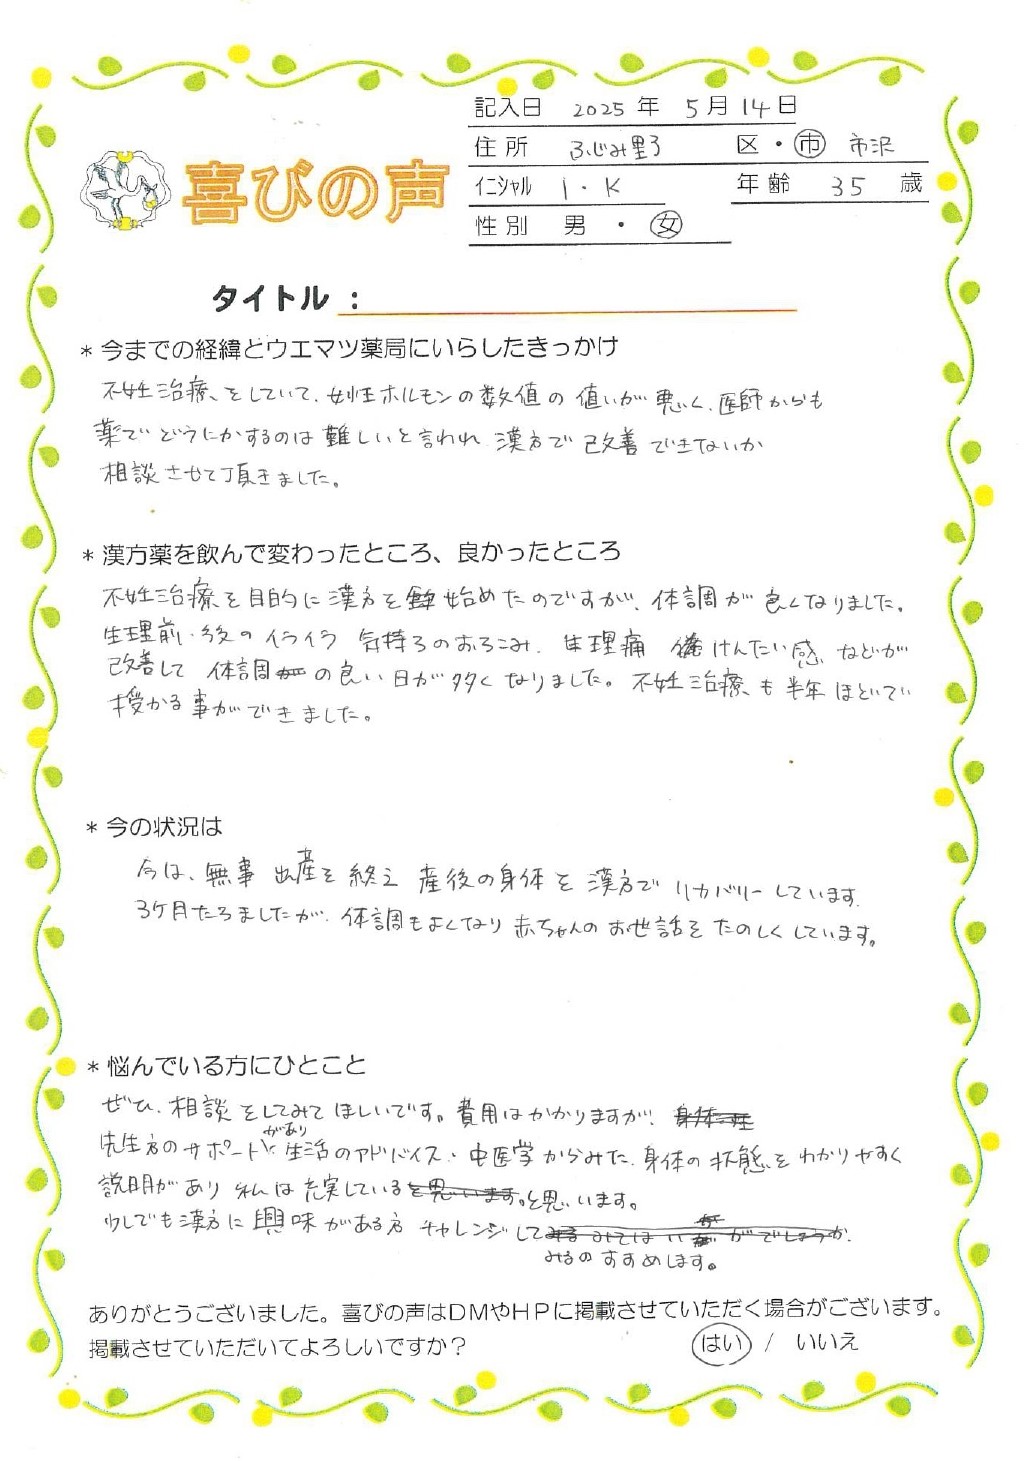 記入日 2025年 5月14日
住所 ふじみ野 区・市 市沢
喜びの声
イニシャル I・K 年齢 35 歳
性別 男・女
タイトル：
＊今までの経緯とウエマツ薬局にいらしたきっかけ
不妊治療をしていて、女性ホルモンの数値の値いが悪く、医師からも
薬でどうにかするのは難しいと言われ 漢方で改善できないか
相談させて頂きました。
＊漢方薬を飲んで変わったところ、良かったところ
不妊治療を目的に漢方を始めたのですが、体調が良くなりました。
生理前・後のイライラ 気持ちのおちこみ、生理痛 けんたい感などが
改善して 体調の良い日が多くなりました。不妊治療も半年ほどでい
授かる事ができました。
＊今の状況は
今は、無事出産を終え 産後の身体を漢方でリカバリーしています。
3ヶ月たちましたが、体調もよくなり赤ちゃんのお世話をたのしくしています。
＊悩んでいる方にひとこと
ぜひ、相談をしてみてほしいです。費用はかかりますが、
先生方のサポートがあり 生活のアドバイス・中医学からみた、身体の状態をわかりやすく
説明があり 私は充実していると思います。
少しでも漢方に興味がある方 チャレンジして
みるのすすめします。
ありがとうございました。喜びの声はDMやHPに掲載させていただく場合がございます。
掲載させていただいてよろしいですか？ はい / いいえ